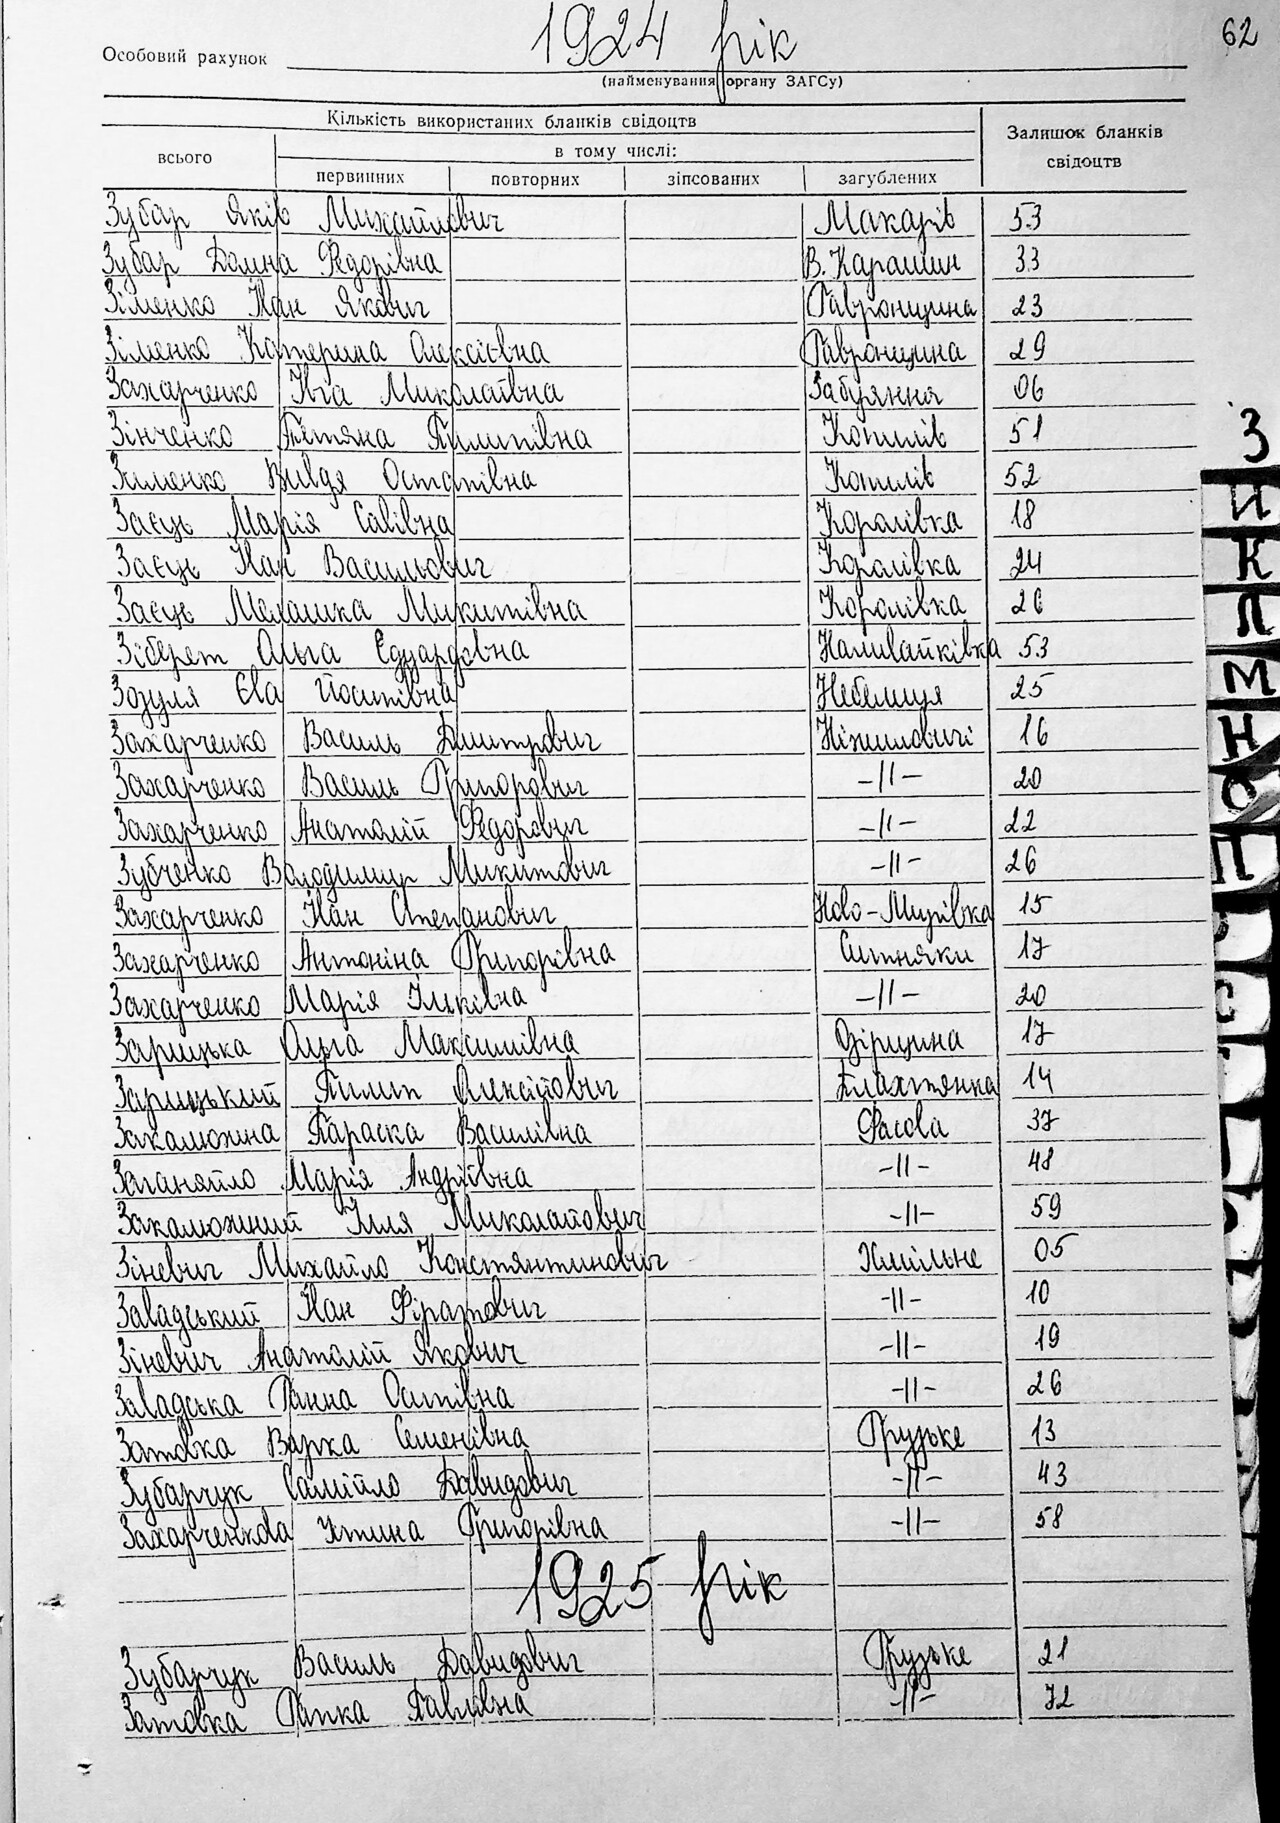 62
1924 рік
Особовий рахунок
(найменування органу ЗАГСу)
Кількість використаних бланків свідоцтв
Залишок бланків свідоцтв
всього
в тому числі:
первинних повторних зіпсованих загублених
Зубар Яків Михайлович Макарів 53
Зубар Домна Федорівна В. Карашин 33
Зіменко Іван Якович Гавронщина 23
Зіменко Катерина Олексієвна Гавронщина 29
Захарченко Івга Миколаївна Забуяння 06
Зінченко Тетяна Пилипівна Копилів 51
Зименко Вивдя Остапівна Копилів 52
Заєць Марія Савівна Королівка 18
Заєць Іван Васильович Королівка 24
Заєць Мелашка Микитівна Королівка 26
Зіберт Ольга Едуардовна Наливайківка 53
Зозуля Єва Йосипівна Небелиця 25
Захарченко Василь Дмитрович Ніжиловичі 16
Захарченко Василь Григорович -||- 20
Захарченко Анатолій Федорович -||- 22
Зубченко Володимир Микитович -||- 26
Захарченко Іван Степанович Ново-Мирівка 15
Захарченко Антоніна Григорівна Ситняки 17
Захарченко Марія Ільківна -||- 20
Зарицька Ольга Максимівна 17
Зарицький Пилип Олексійович Плахтянка 14
Закалюжна Параска Василівна Фасова 37
Заганяйло Марія Андріївна -||- 48
Закалюжний Ілля Миколайович -||- 59
Зіневич Михайло Констянтинович Хмільне 05
Завадський Іван -||- 10
Зіневич Анатолій Якович -||- 19
Завадська Ганна Осипівна -||- 26
Затовка Варка Семенівна Грузьке 13
Зубарчук Самійло Давидович -||- 43
Захарченкова Устина Григорівна -||- 58
1925 рік
Зубарчук Василь Давидович Грузьке 21
Затовка Гапка Павлівна -||- 72
З
И
К
Л
М
Н
О
П
Р
С